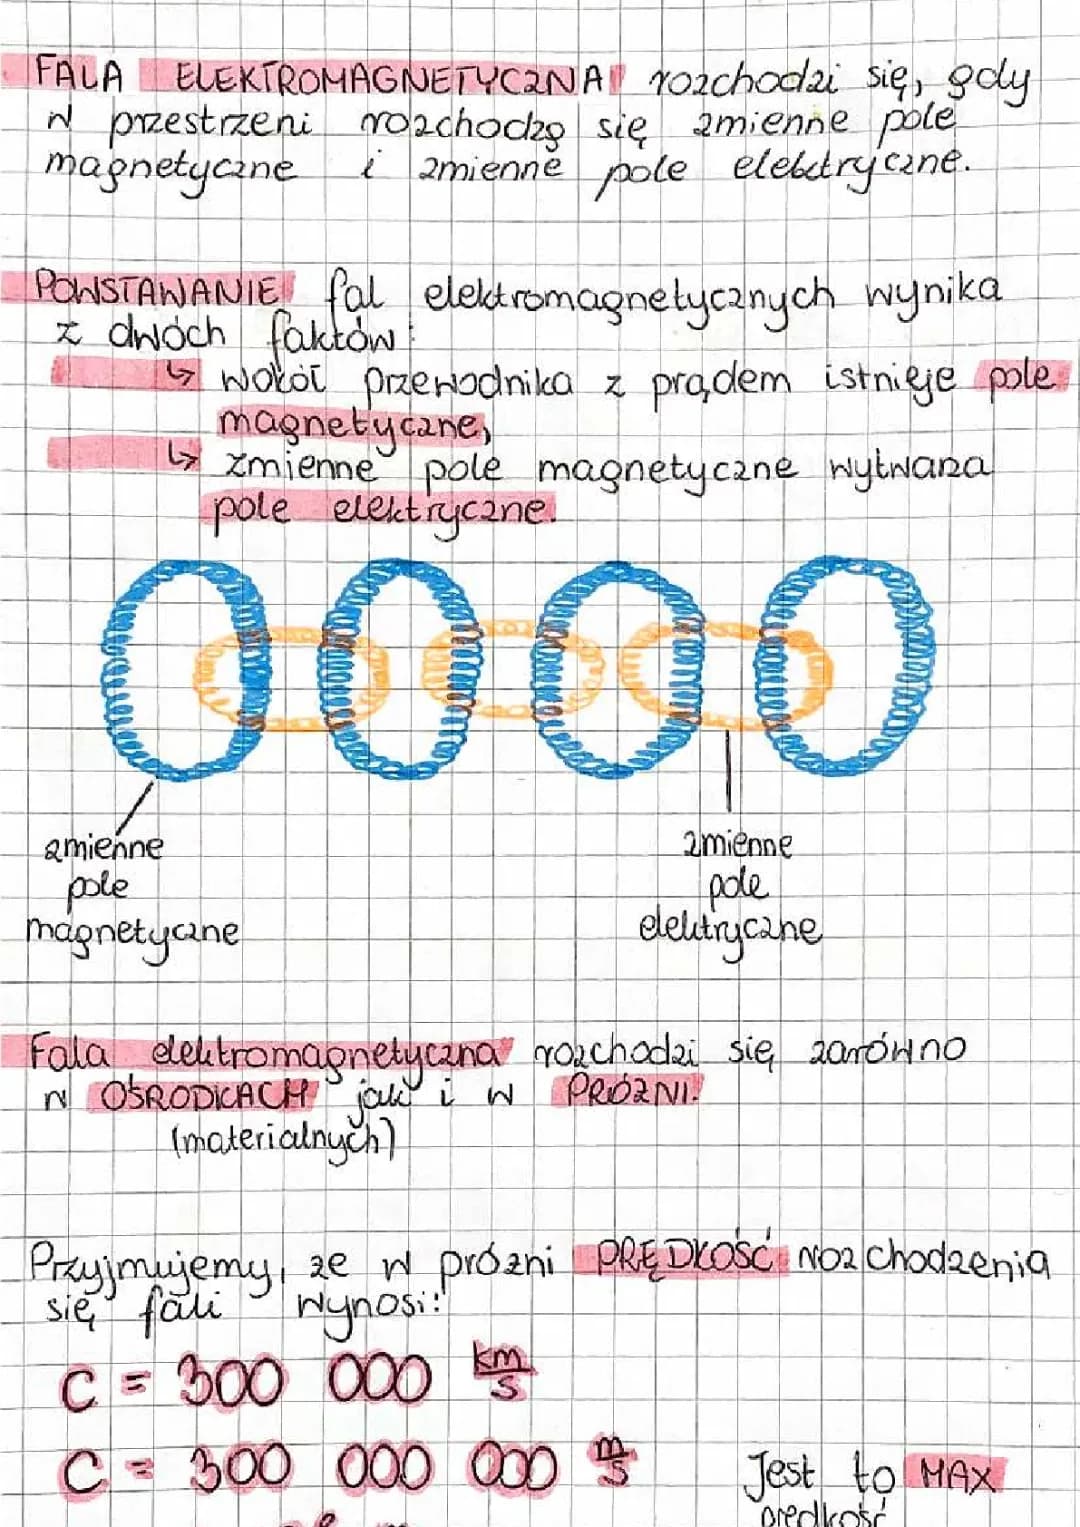 FALA ELEKTROMAGNETYCZNA rozchodzi się, gdy
w przestrzeni rozchodzą się zmienne pole
magnetyczne i zmienne pole elektryczne.
POWSTAWANIE fal elektromagnetycznych wynika
z dwóch faktów:
↳ wokół przewodnika z prądem istnieje pole
magnetyczne,
↳ zmienne pole magnetyczne wytwarza
pole elektryczne.
zmienne
pole
magnetyczne
zmienne
pole
elektryczne
Fala elektromagnetyczna rozchodzi się zarówno
w OŚRODKACH jak i w PRÓŻNI!
(materialnych)
Przyjmujemy, że w próżni PRĘDKOŚĆ rozchodzenia
się fali wynosi:
C = 300 000 km/s
C = 300 000 000 m/s
Jest to MAX
prędkość